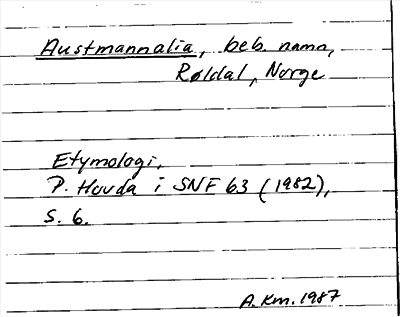 Austmannalia, beb. namn,
Røldal, Norge
Etymologi,
P. Hovda i SNF 63 (1982),
s. 6.
A. Km. 1987